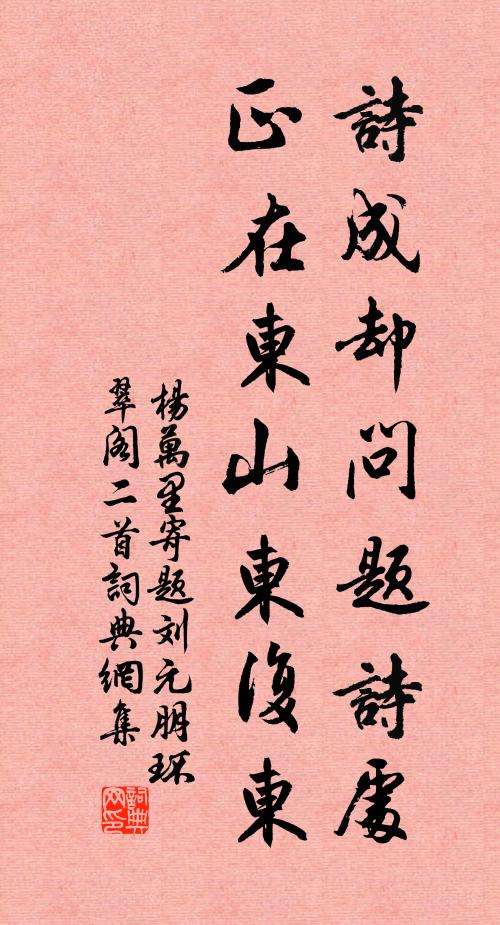 詩成却問題詩處
正在東山東復東
楊萬里寄題刘元朋环
翠阁二首詞典網集
詞典
网印